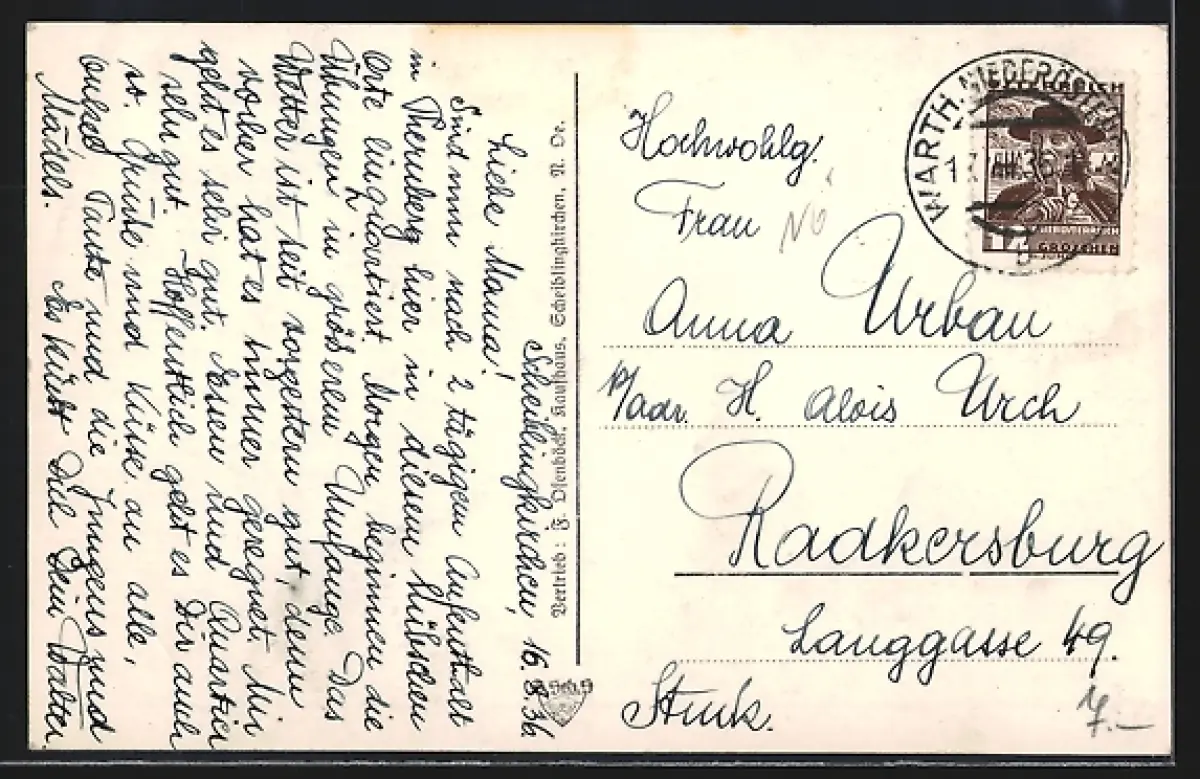 Scheiblingkirchen, 16.8.36
Liebe Mama!
Sind nun nach 2 tägigen Aufenthalt
in Thernberg hier in diesem hübschen
Orte einquartiert. Morgen beginnen die
Übungen in größerem Umfange. Das
Wetter ist seit vorgestern gut, denn
vorher hat es immer geregnet. Mir
geht es sehr gut. Essen und Quartier
sehr gut. Hoffentlich geht es Dir auch
so. Grüße und Küsse an alle,
Onkel Tante und die Jungens und
Mädels. Es küßt Dich Dein Walter.
Vertrieb: F. Osenböck, Kaufhaus, Scheiblingkirchen, N. Oe.
WARTH, NIEDERÖSTERR
ÖSTERREICH
GROSCHEN
Hochwohlg.
Frau
NÖ
Anna Urban
p/adr. H. Alois Urch
Radkersburg
Langgasse 49.
Stmk.
7.—